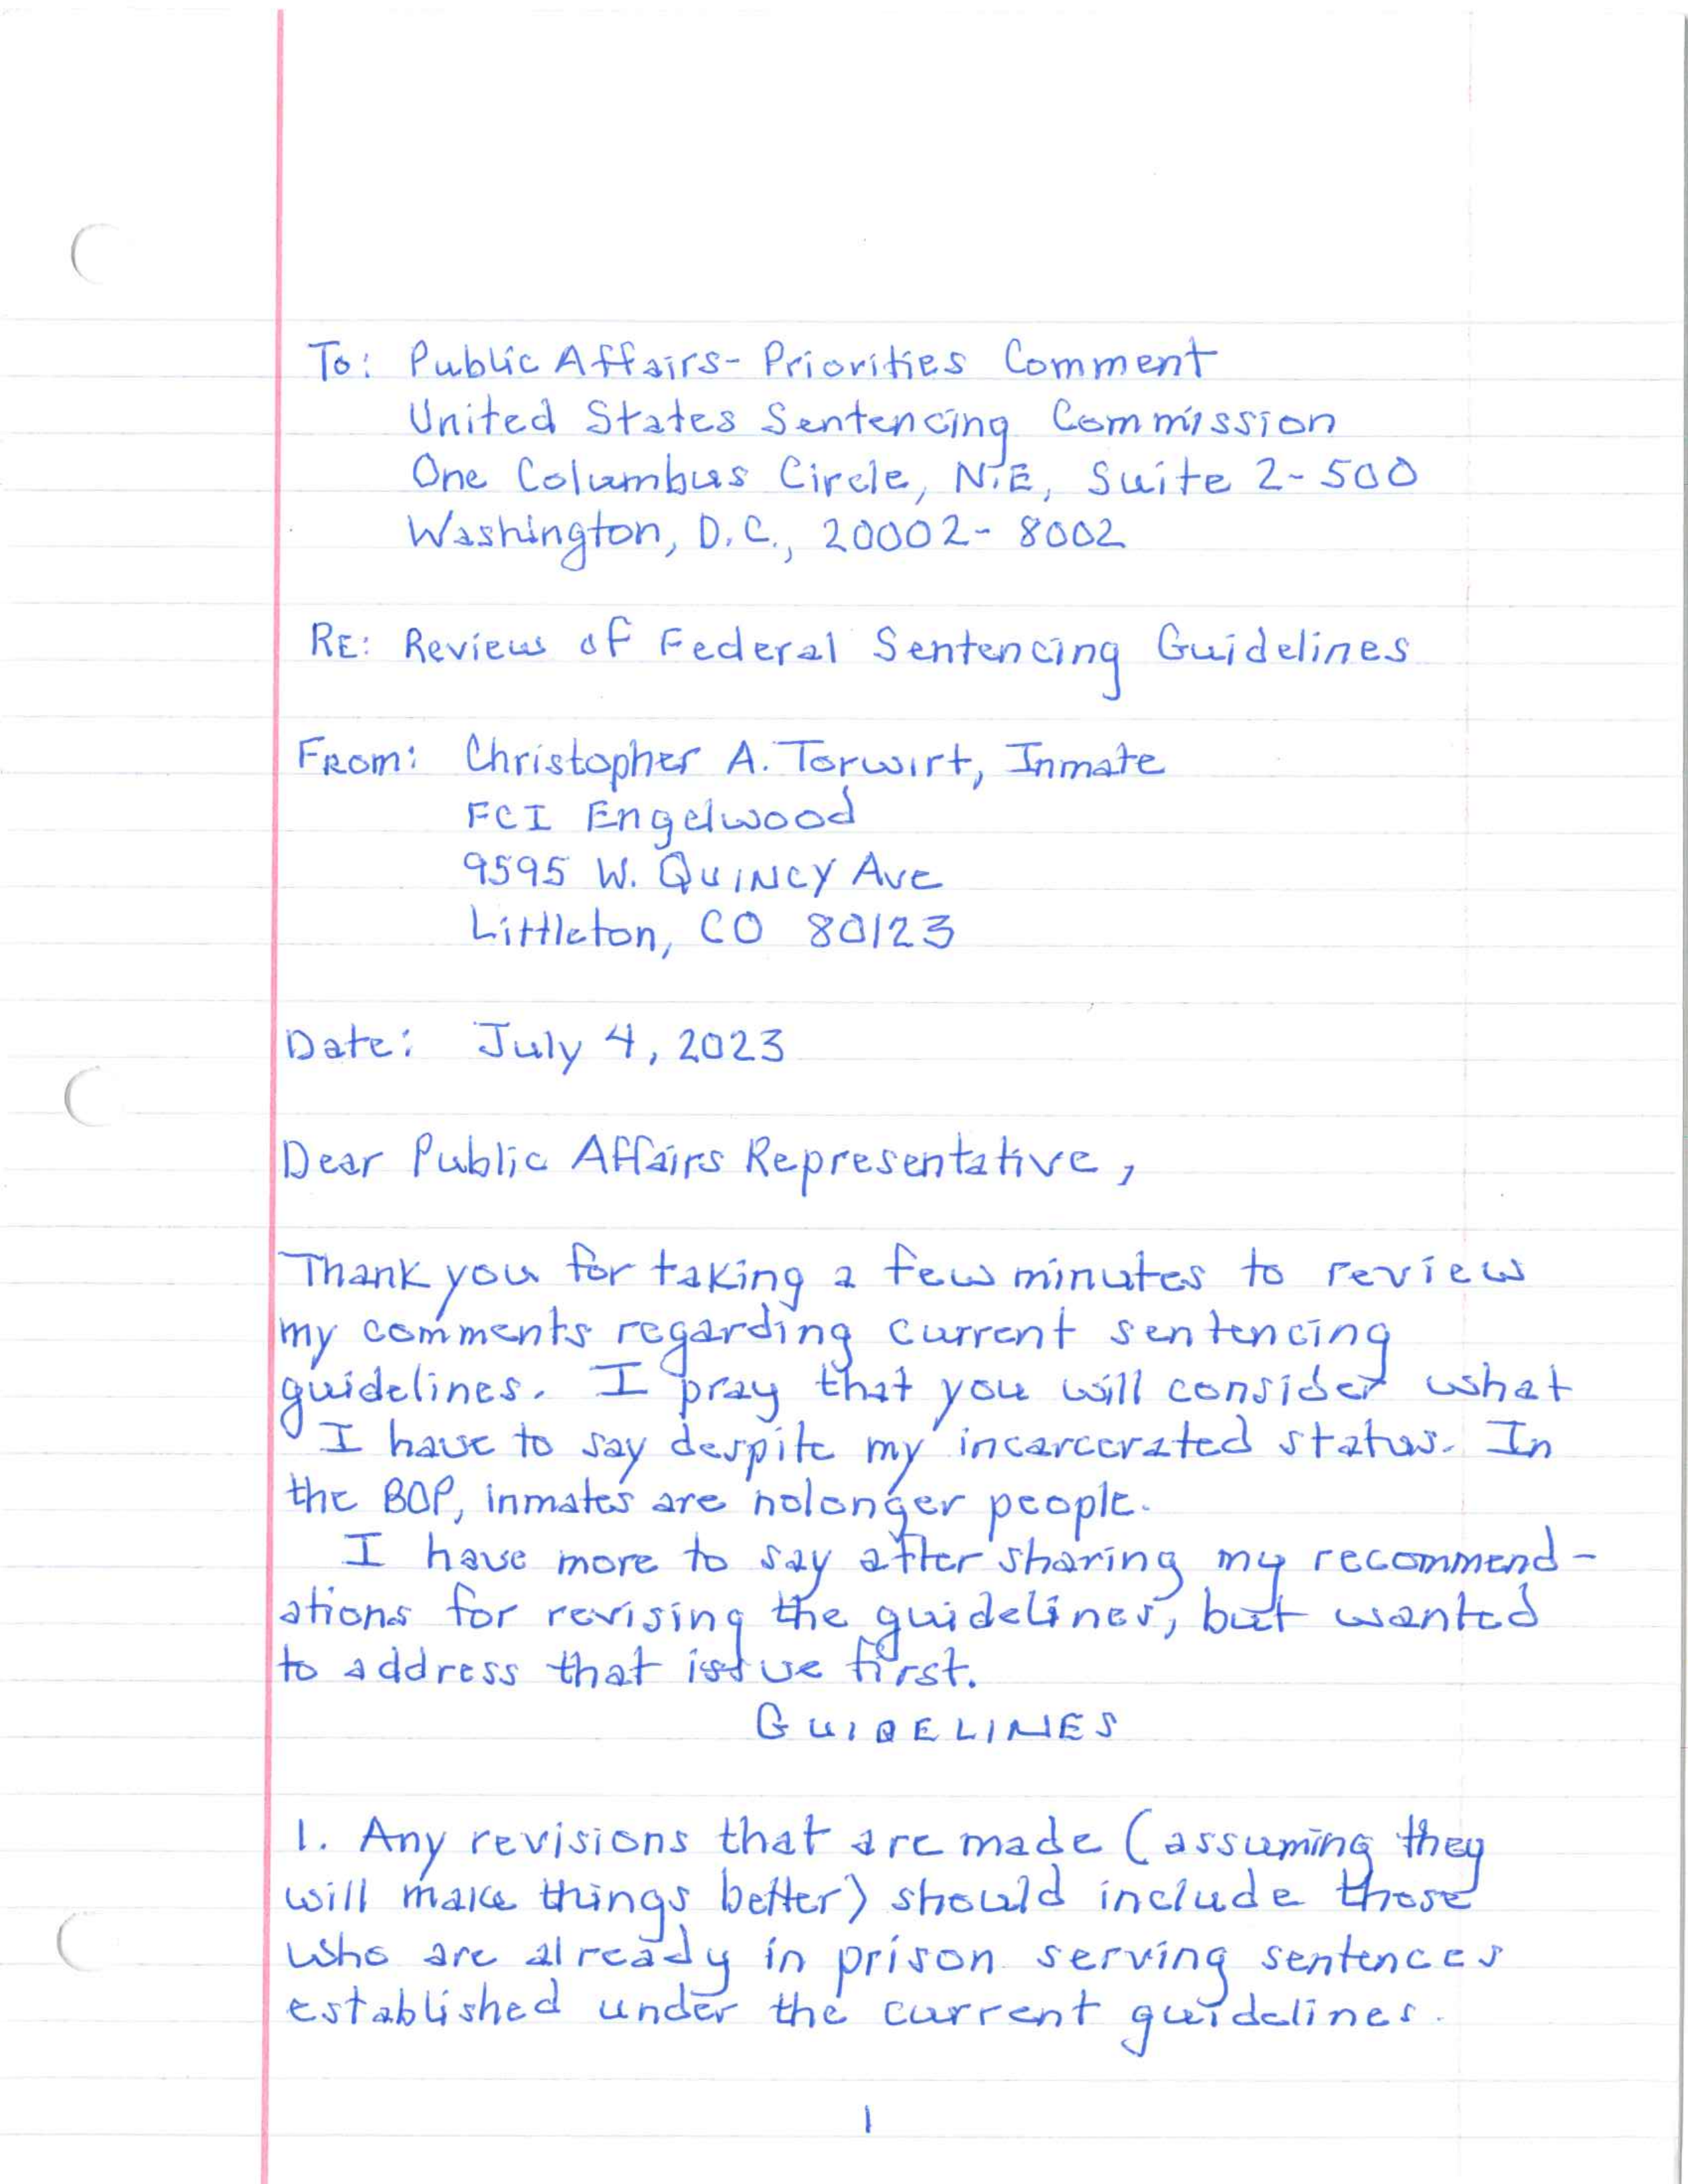 To: Public Affairs- Priorities Comment
United States Sentencing Commission
One Columbus Circle, N.E, Suite 2-500
Washington, D.C., 20002-8002
RE: Review of Federal Sentencing Guidelines
From: Christopher A. Torwirt, Inmate
FCI Engelwood
9595 W. Quincy Ave
Littleton, CO 80123
Date: July 4, 2023
Dear Public Affairs Representative,
Thank you for taking a few minutes to review
my comments regarding current sentencing
guidelines. I pray that you will consider what
I have to say despite my incarcerated status. In
the BOP, inmates are nolonger people.
I have more to say after sharing my recommend-
ations for revising the guidelines, but wanted
to address that issue first.
GUIDELINES
1. Any revisions that are made (assuming they
will make things better) should include those
who are already in prison serving sentences
established under the current guidelines.
1